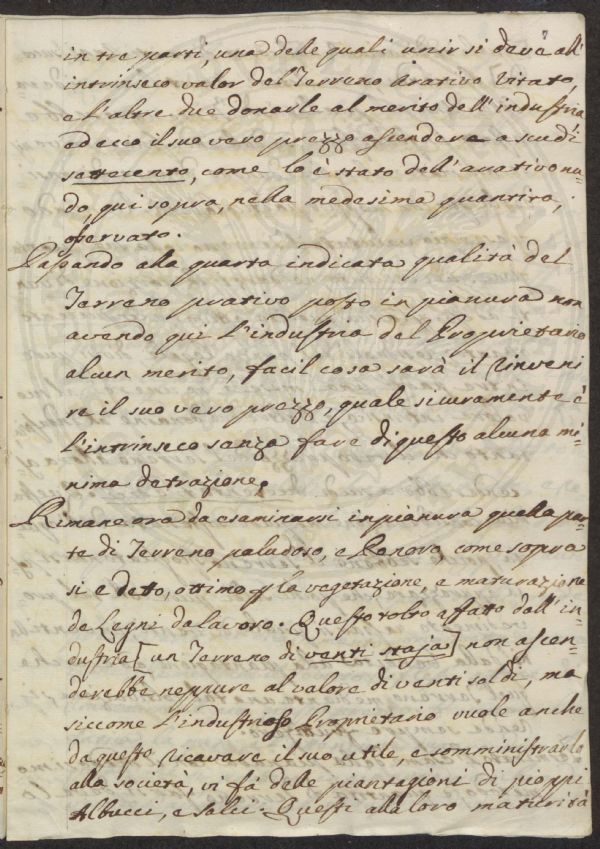 in tre parti, una delle quali unir si deve all'
intrinseco valor del Terreno Arativo Vitato,
e l'altre due donarle al merito dell'industria
ad ecco il suo vero prezzo ascendere a scudi
settecento, come lo è stato dell'arativo nu-
do, qui sopra, nella medesima quantità,
osservato.
Passando alla quarta indicata qualità del
Terreno prativo posto in pianura non
avendo qui l'industria del Proprietario
alcun merito, facil cosa sarà il Rinveni
re il suo vero prezzo, quale sicuramente è
l'intrinseco sanza fare di questo alcuna mi-
nima detrazione.
Rimane ora da esaminarsi in pianura quella par
te di Terreno paludoso, e Renoso, come sopra
si e detto, ottimo p la vegetazione, e maturazione
de Legni da lavoro. Questo tolto affatto dall'in-
dustria [un Terreno di venti staja] non ascen-
derebbe neppure al valore di venti soldi, ma
siccome l'industrioso Proprietario vuole anche
da questo Ricavare il suo utile, e somministrarlo
alla società, vi fà delle piantagioni di pioppi
Albucci, e salci. Questi alla loro maturità